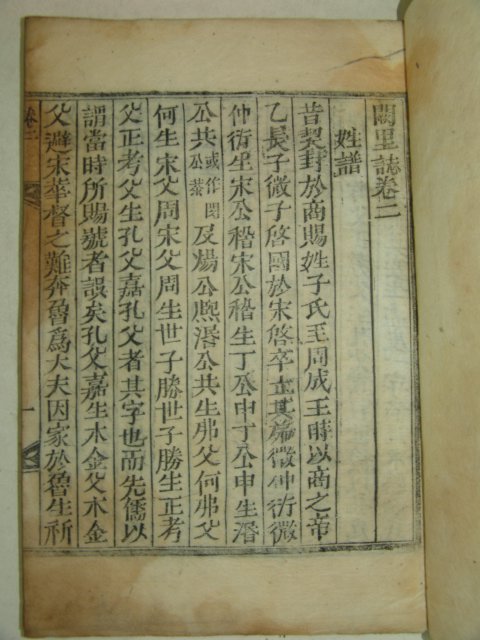 闕里誌卷二
姓譜
昔契封於商賜姓子氏至周成王時以商之帝
乙長子微子啓國於宋啓卒立其弟微仲衍微
仲衍生宋公稽宋公稽生丁公申丁公申生湣
公共或作閔公恭及煬公熙湣公共生弗父何弗父
何生宋父周宋父周生世子勝世子勝生正考
父正考父生孔父嘉孔父者其字也而先儒以
謂當時所賜號者誤矣孔父嘉生木金父木金
父避宋華督之難奔魯爲大夫因家於魯生祈
卷二
一